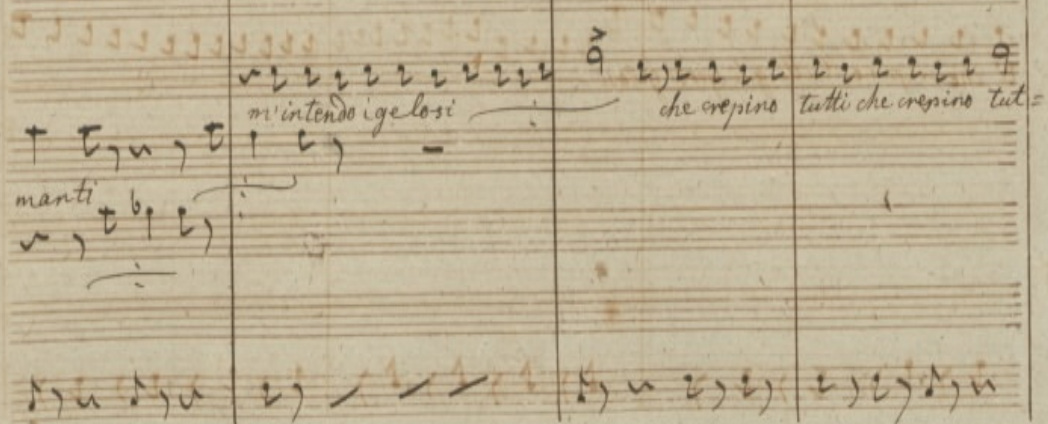 m'intendo i gelosi che crepino tutti che crepino tut=
manti